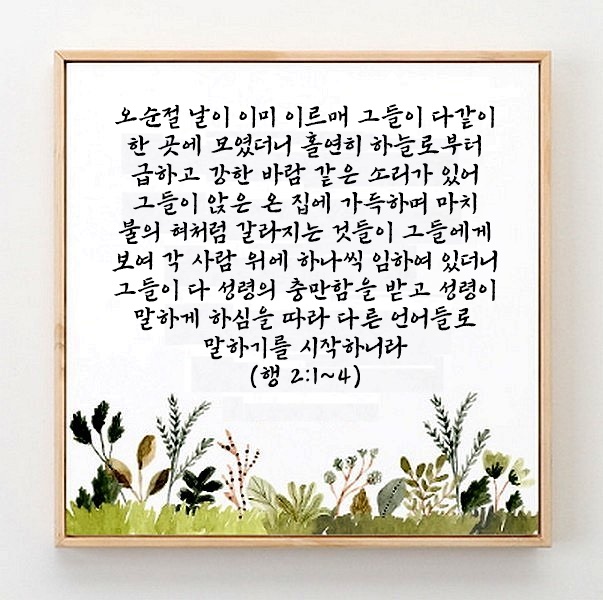 오순절 날이 이미 이르매 그들이 다같이
한 곳에 모였더니 홀연히 하늘로부터
급하고 강한 바람 같은 소리가 있어
그들이 앉은 온 집에 가득하며 마치
불의 혀처럼 갈라지는 것들이 그들에게
보여 각 사람 위에 하나씩 임하여 있더니
그들이 다 성령의 충만함을 받고 성령이
말하게 하심을 따라 다른 언어들로
말하기를 시작하니라
(행 2:1~4)